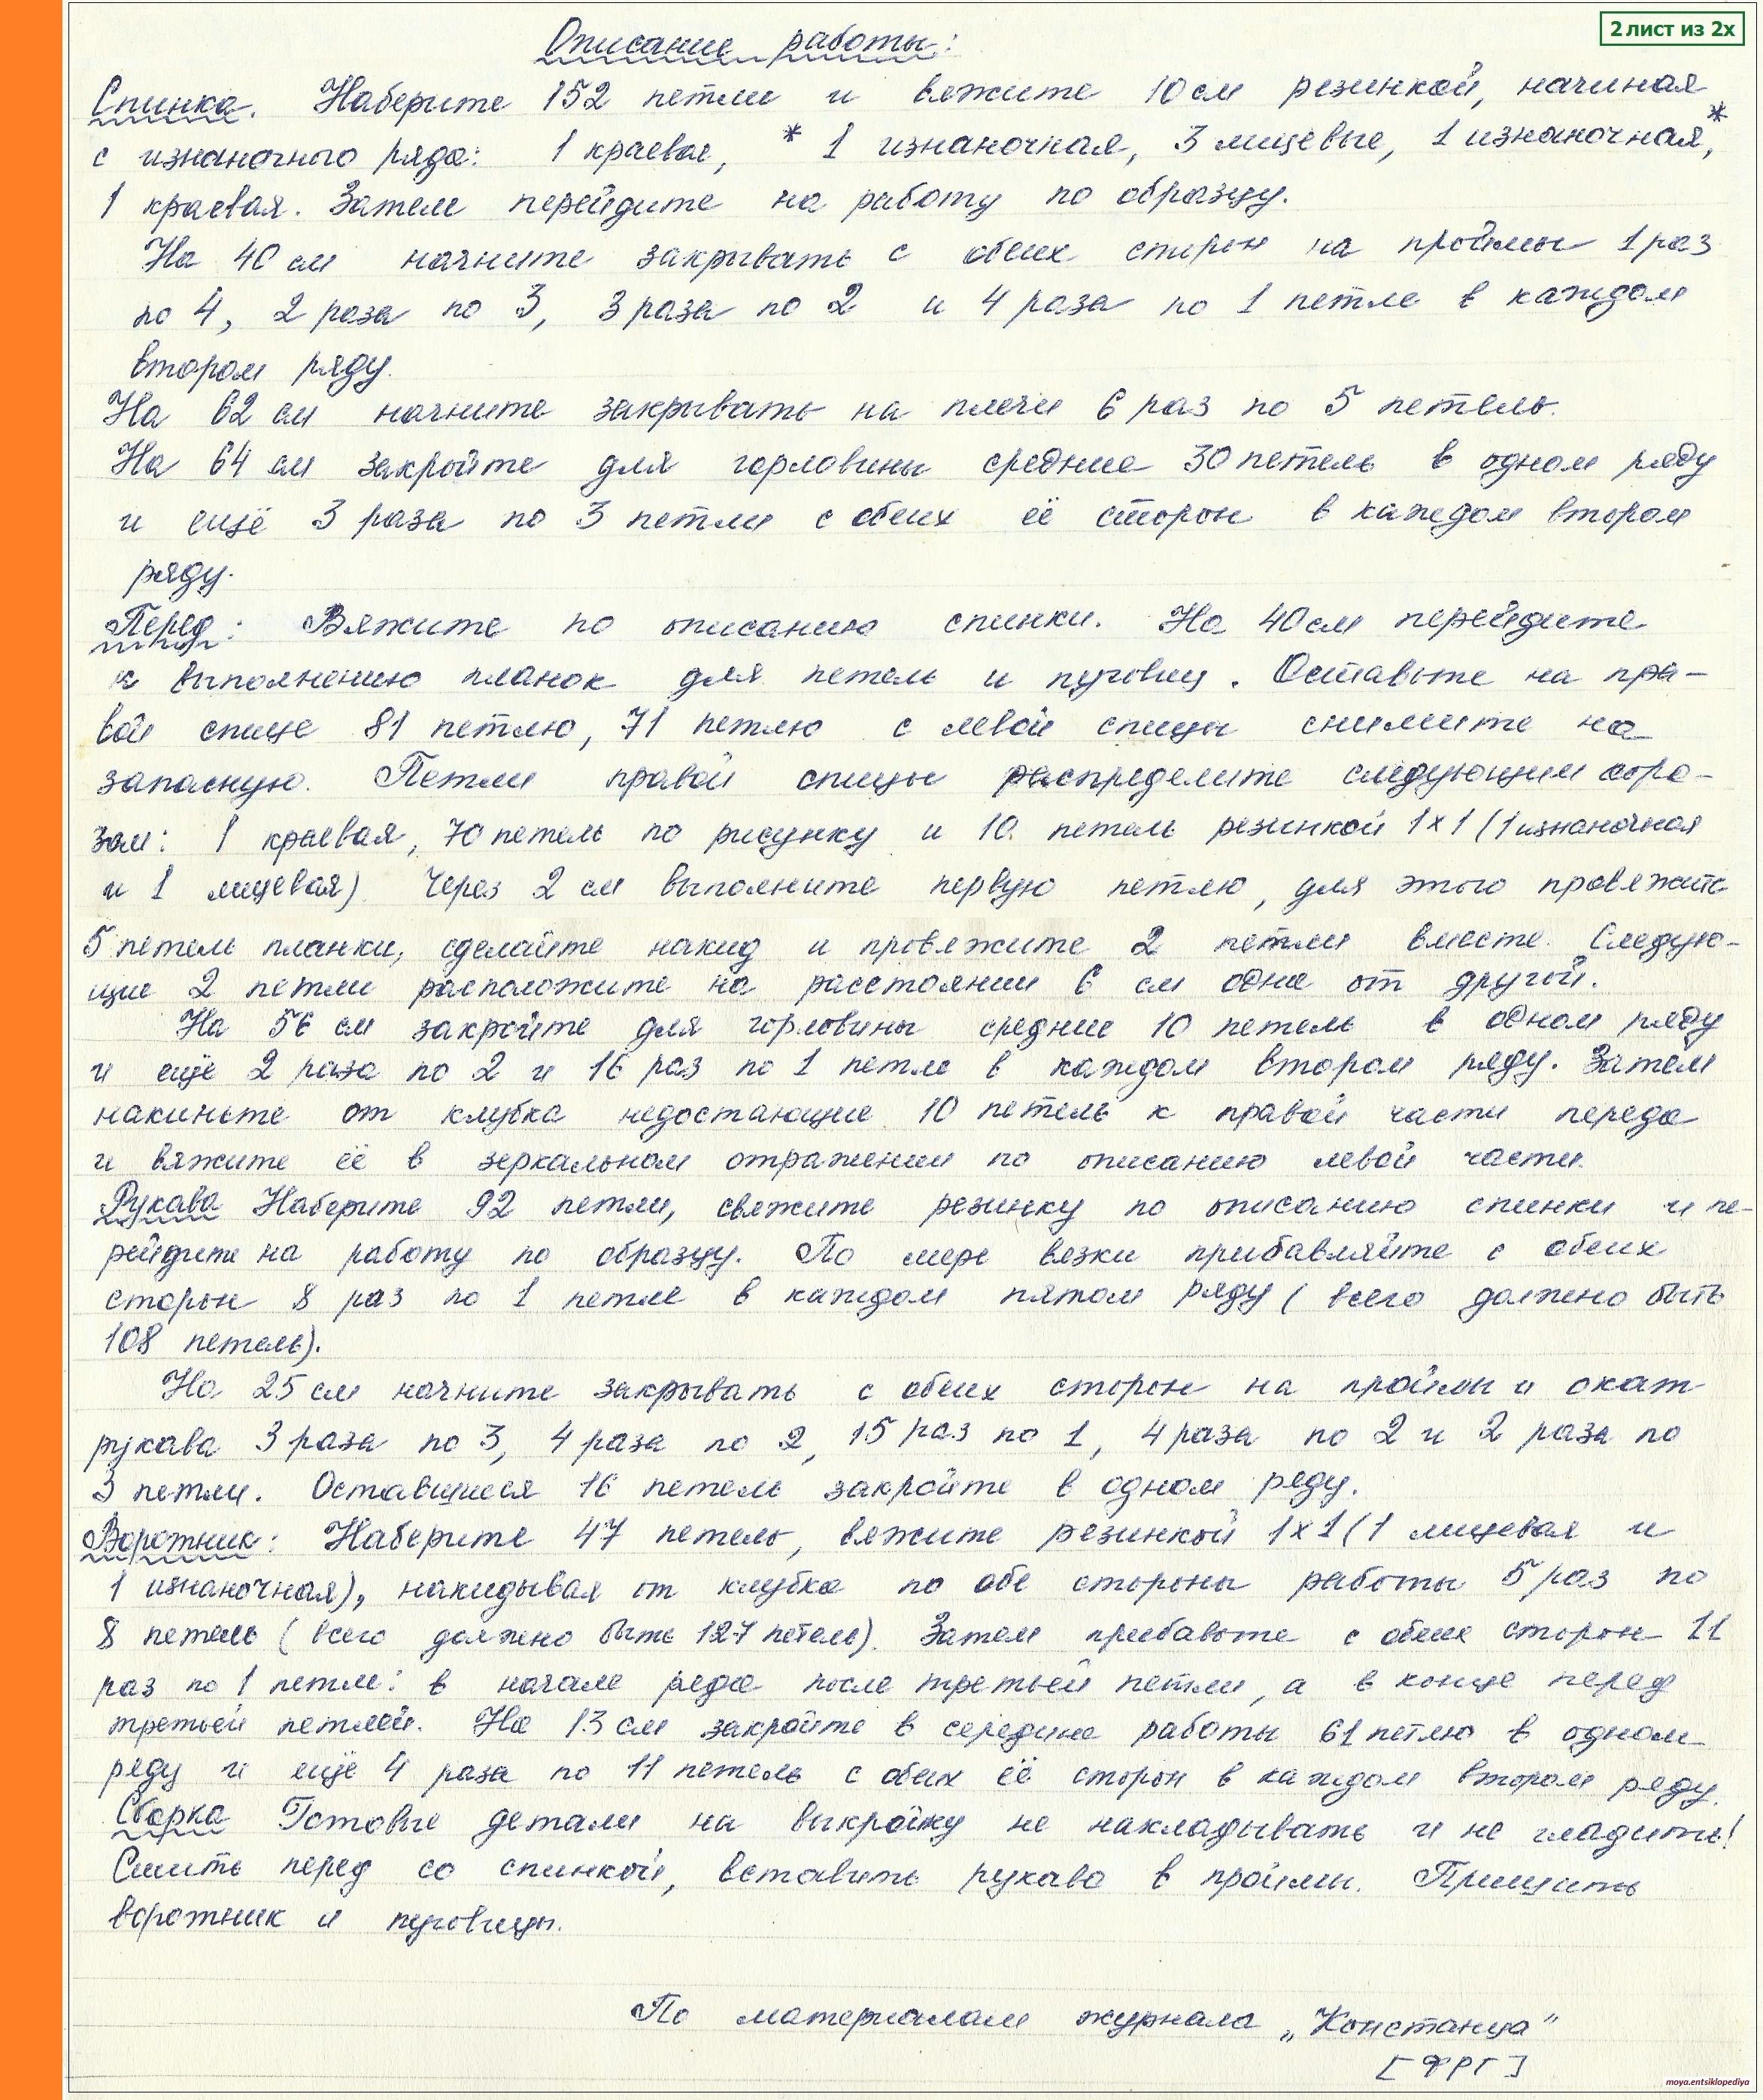 2 лист из 2х
Описание работы:
Спинка. Наберите 152 петли и вяжите 10 см резинкой, начиная
с изнаночного ряда: 1 краевая, * 1 изнаночная, 3 лицевые, 1 изнаночная, *
1 краевая. Затем перейдите на работу по образцу.
На 40 см начните закрывать с обеих сторон на проймы 1 раз
по 4, 2 раза по 3, 3 раза по 2 и 4 раза по 1 петле в каждом
втором ряду.
На 62 см начните закрывать на плечи 6 раз по 5 петель.
На 64 см закройте для горловины средние 30 петель в одном ряду
и ещё 3 раза по 3 петли с обеих её сторон в каждом втором
ряду.
Перед: Вяжите по описанию спинки. На 40 см перейдите
к выполнению планок для петель и пуговиц. Оставьте на пра-
вой спице 81 петлю, 71 петлю с левой спицы снимите на
запасную. Петли правой спицы распределите следующим обра-
зом: 1 краевая, 70 петель по рисунку и 10 петель резинкой 1x1 (1 изнаночная
и 1 лицевая). Через 2 см выполните первую петлю, для этого провяжите
5 петель планки, сделайте накид и провяжите 2 петли вместе. Следую-
щие 2 петли расположите на расстоянии 6 см одна от другой.
На 56 см закройте для горловины средние 10 петель в одном ряду
и ещё 2 раза по 2 и 16 раз по 1 петле в каждом втором ряду. Затем
накиньте от клубка недостающие 10 петель к правой части переда
и вяжите её в зеркальном отражении по описанию левой части.
Рукава Наберите 92 петли, свяжите резинку по описанию спинки и пе-
рейдите на работу по образцу. По мере вязки прибавляйте с обеих
сторон 8 раз по 1 петле в каждом пятом ряду (всего должно быть
108 петель).
На 25 см начните закрывать с обеих сторон на проймы и окат
рукава 3 раза по 3, 4 раза по 2, 15 раз по 1, 4 раза по 2 и 2 раза по
3 петли. Оставшиеся 16 петель закройте в одном ряду.
Воротник: Наберите 47 петель, вяжите резинкой 1x1 (1 лицевая и
1 изнаночная), накидывая от клубка по обе стороны работы 5 раз по
8 петель (всего должно быть 127 петель). Затем прибавьте с обеих сторон 11
раз по 1 петле: в начале ряда после третьей петли, а в конце перед
третьей петлей. На 13 см закройте в середине работы 61 петлю в одном
ряду и ещё 4 раза по 11 петель с обеих её сторон в каждом втором ряду.
Сборка Готовые детали на выкройку не накладывать и не гладить!
Сшить перед со спинкой, вставить рукава в проймы. Пришить
воротник и пуговицы.
По материалам журнала „Констанца"
[ФРГ]
moya.entsiklopediya